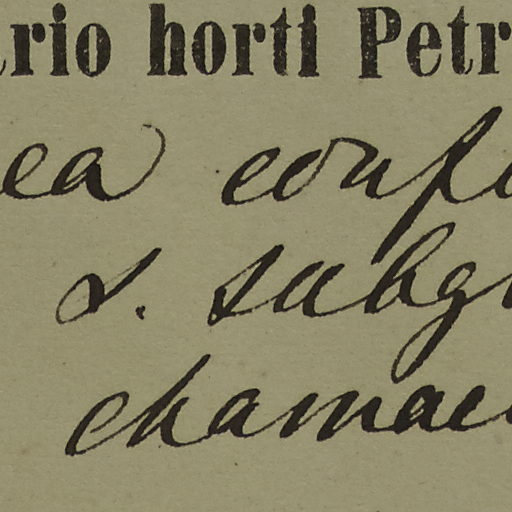 rio horti Petr
ea conf
s. subg
chamae